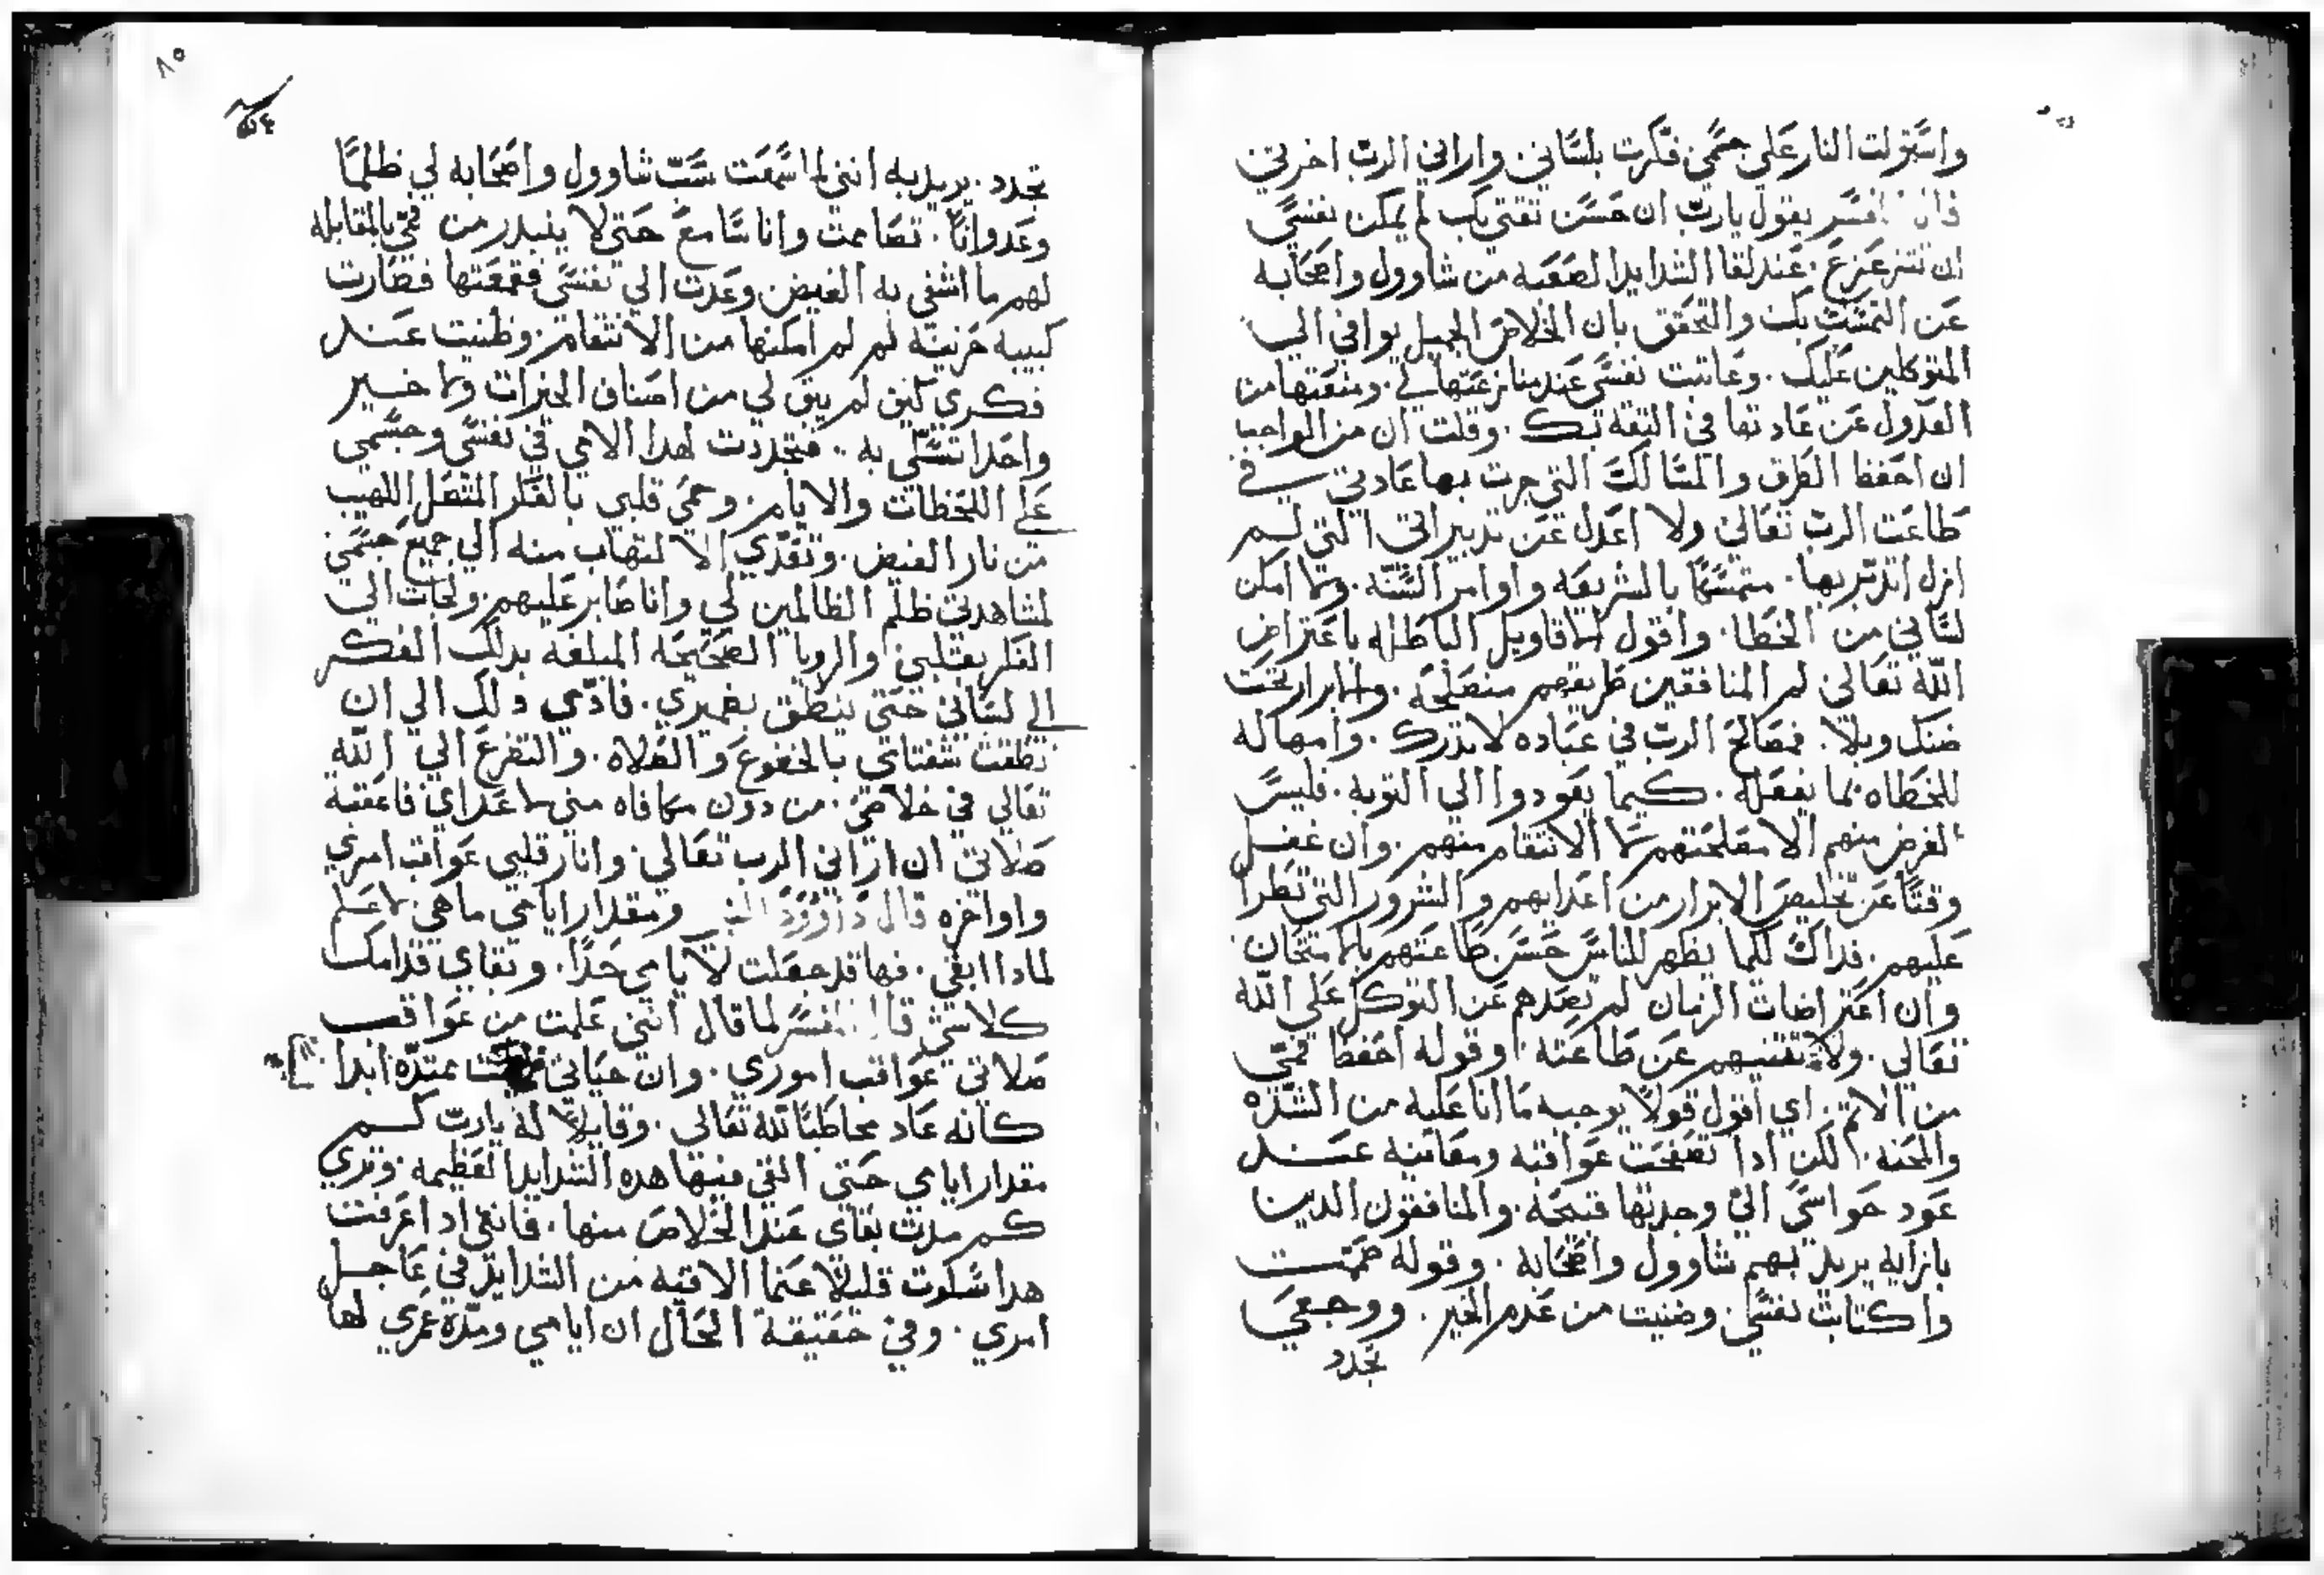 واستولت النار على جسمي فكرت بلساني واراني الرب اخرتي
قال المفسر يقول يارب ان حسن تقتي بك لم يمكن نفسي
ان تتزعزع عند لقا الشدايد الصعبه من شاوول واصحابه
عن التمسك بك والتحقق بان الخلاص الجميل يوافي الي
المتوكلين عليك . وعاتبت نفسي عند منازعتها لي . ومنعتها من
العدول عن عادتها في التقه بك . وقلت ان من الواجب
ان احفظ الطرق والمسالك التي جرت بها عادتي في
طاعت الرب تعالى ولا اعدل عن تدبيراتي التي لم
ازل اتدبر بها . متمسكا بالشريعه واوامر السنه . ولا امكن
لساني من الخطا . واقول الاقاويل الباطله باعتراض
الله تعالى لم المنافقين طريقهم منصلحه . والابرار تحت
ضنك وبلا . فمصالح الرب في عباده لا تدرك . وامهاله
للخطاه بما يفعله . كيما يعودوا الي التوبه . فليس
الغرض منهم الا مصلحتهم لا الانتقام منهم . وان غفل
وقتا عن تخليص الابرار من اعدايهم والشرور التي تطرا
عليهم . فداك لكيما يظهر للناس حسن طاعتهم بالامتحان
وان اعتراضات الزمان لم تصدهم عن التوكل على الله
تعالى . ولا تتنيهم عن طاعته . وقوله احفظ فمي
من الاتم . اي اقول قولا يوجبه ما انا عليه من الشده
والمحنه . لكن ادا تصفحت عواقبه ومعانيه عند
عود حواسي الي وجدتها قبيحه . والمنافقون الدين
بازايه يريد بهم شاوول واصحابه . وقوله صمت
واكتابت نفسي . وضنيت من عدم الخير . ووجعي
تجدد
تجدد . يريد به انني لما سمعت سب شاوول واصحابه لي ظلما
وعدوانا . تصاممت وانا سامع حتى لا يبدر من فمي بالمقابله
لهم ما اشفي به الغيض وعدت الي نفسي فقمعتها فصارت
كييبه حزينه لم لم امكنها من الانتقام . وظنيت عند
فكري كني لم يبق لي من اصناف الخيرات ولا خير
واحدا تسلي به . فتجددت لهدا الامي في نفسي وجسمي
على اللحظات والايام . وحمي قلبي بالفكر المتصل اللهيب
من نار الغيض . وتعدي الالتهاب منه الي جميع جسمي
لمشاهدتي ظلم الظالمين لي وانا صابر عليهم . ولجات الي
الفكر بقلبي والرويا الصحيحه المبلغه بدلك الفكر
الى لساني حتى ينطق بضميري . فادي دلك الي ان
نطقت شفتاي بالخضوع والصلاه . والتضرع الي الله
تعالي في خلاصي . من دون مكافاه مني لاعداي فاعقبه
صلاتي ان اراني الرب تعالي . وانار قلبي عواقب امري
واواخره قال داوود النبي ومقدار ايامي ما هي لاعلم
لمادا ابقي . فها قد جعلت لايامي حدا . وبقاي قدامك
كلا شي قال المفسر لما قال انني علمت من عواقب
صلاتي عواقب اموري . وان حياتي ممتده ابدا
كانه عاد مخاطبا لله تعالى . وقايلا له يارب كم
مقدار ايامي حتى القي فيها هده الشدايد العظيمه . وتري
كم مدت بقاي عند الخلاص منها . فانني اد اعرفت
هدا سكوت قليلا عنما الاقيه من الشدايد في عاجل
امري . وفي حقيقة الحال ان ايامي ومدة عمري لها